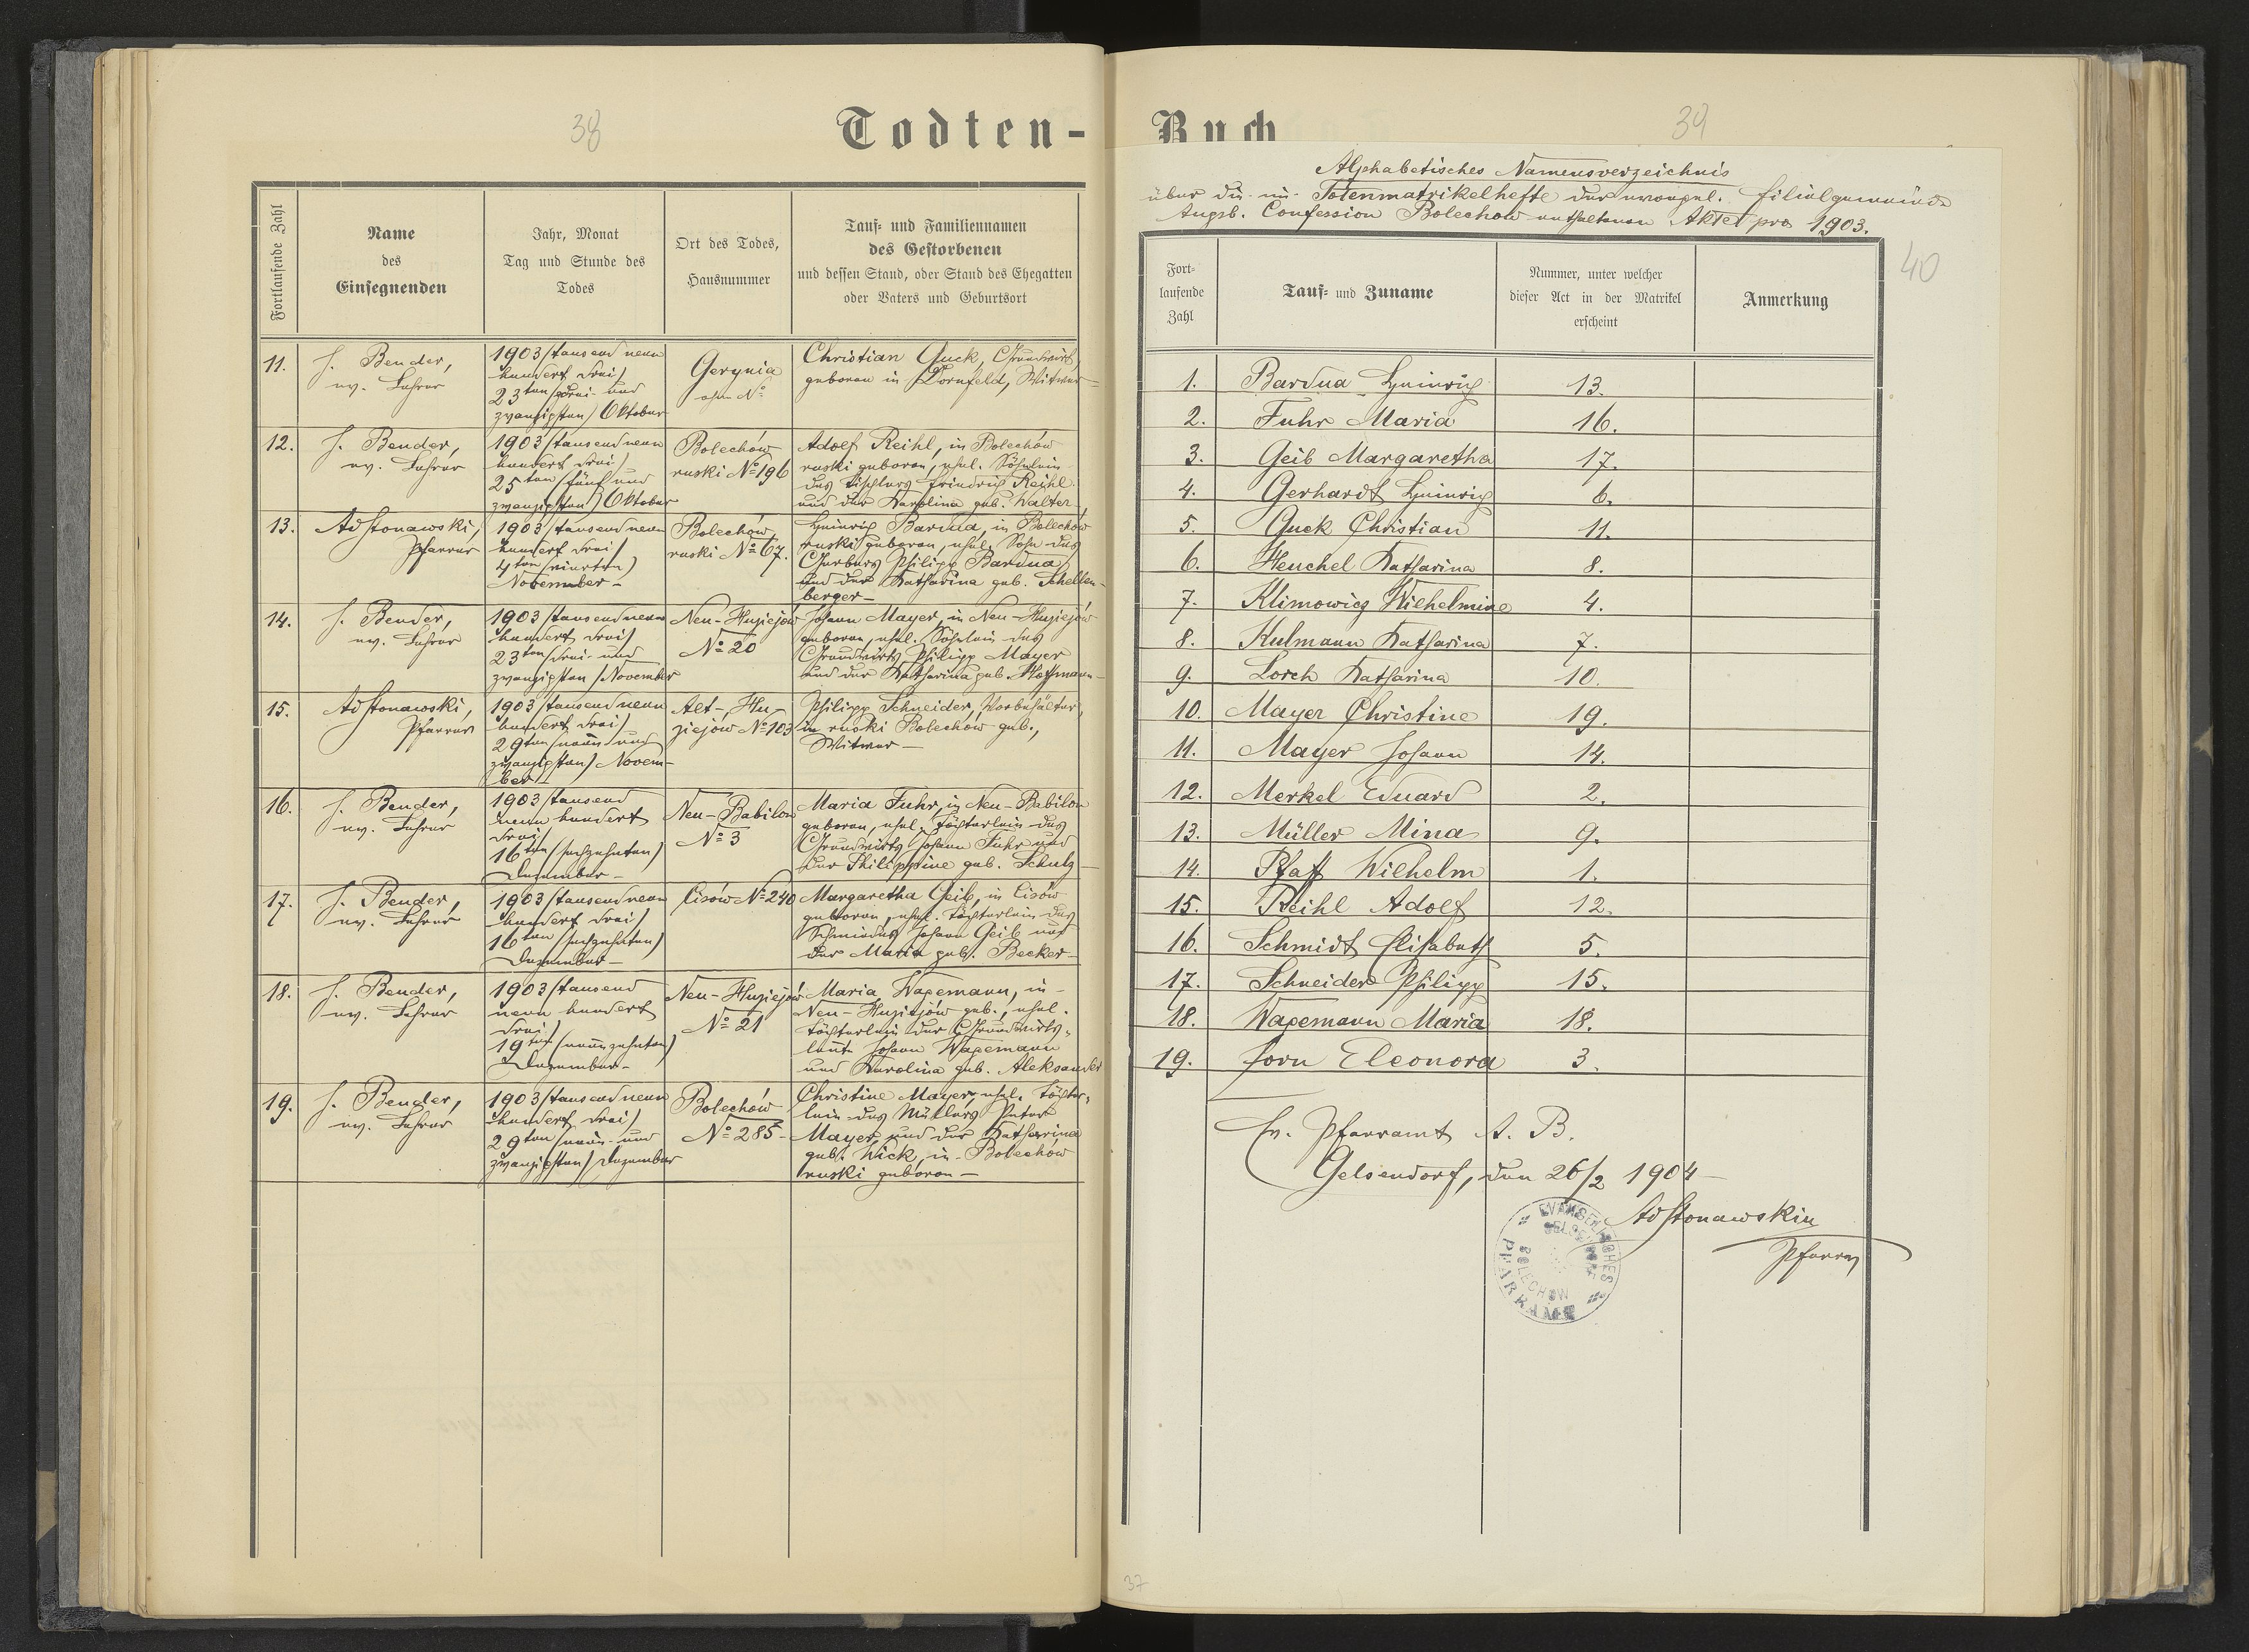 38
Todten-
Fortlaufende Zahl
Name
des
Einsegnenden
Jahr, Monat
Tag und Stunde des
Todes
Ort des Todes,
Hausnummer
Tauf- und Familiennamen
des Gestorbenen
und dessen Stand, oder Stand des Ehegatten
oder Vaters und Geburtsort
11.
J. Bender,
ev. Lehrer
1903 /tausend neun
hundert drei/
23ten /drei- und
zwanzigsten/ Oktober
Gerynia
ohne No
Christian Guck, Grundwirt,
geboren in Dornfeld, Witwer
12.
J. Bender,
ev. Lehrer
1903 /tausend neun
hundert drei/
25ten /fünf und
zwanzigsten/ Oktober
Bolechów
ruski No 196
Adolf Reihl, in Bolechów
ruski geboren, ehel. Söhnlein
des Tischlers Friedrich Reihl
und der Karolina geb. Walter
13.
Adstonawski,
Pfarrer
1903 /tausend neun
hundert drei/
4ten /vierten/
November -
Bolechów
ruski No 67.
Heinrich Bardua, in Bolechów
ruski geboren, ehel. Sohn des
Gerbers Philipp Bardua
und der Katharina geb. Schellen-
berger -
14.
J. Bender,
ev. Lehrer
1903 /tausend neun
hundert drei/
23ten /drei- und
zwanzigsten/ November
Neu-Huziejów
No 20
Johann Mayer, in Neu-Huziejów
geboren, ehel. Söhnlein des
Grundwirts Philipp Mayer
und der Katharina geb. Hoffmann -
15.
Adstonawski,
Pfarrer
1903 /tausend neun
hundert drei/
29ten /neun und
zwanzigsten/ Novem-
ber -
Alt-Hu-
ziejów No 103
Philipp Schneider, Vorbehälter,
in ruski Bolechów geb.,
Witwer -
16.
J. Bender,
ev. Lehrer
1903 /tausend
neun hundert
drei/
16ten /sechzehnten/
Dezember -
Neu-Babilon
No 3
Maria Fuhr, in Neu-Babilon
geboren, ehel. Töchterlein des
Grundwirts Johann Fuhr und
der Philippine geb. Schulz -
17.
J. Bender,
ev. Lehrer
1903 /tausend neun
hundert drei/
16ten /sechzehnten/
Dezember -
Lisów No 240
Margaretha Geib, in Lisów
geboren, ehel. Töchterlein des
Schmiedes Johann Geib und
der Maria geb. Becker -
18.
J. Bender,
ev. Lehrer
1903 /tausend
neun hundert
drei/
19ten /neunzehnten/
Dezember -
Neu-Huziejów
No 21
Maria Wagemann, in
Neu-Huziejów geb., ehel.
Töchterlein der Grundwirts-
leute Johann Wagemann
und Karolina geb. Aleksander
19.
J. Bender,
ev. Lehrer
1903 /tausend neun
hundert drei/
29ten /neun- und
zwanzigsten/ Dezember
Bolechów
No 285 -
Christine Mayer, ehel. Töchter-
lein des Müllers Peter
Mayer, und der Katharina
geb. Wick, in Bolechów
ruski geboren -
Buch
39
40
Alphabetisches Namensverzeichnis
über die im Totenmatrikelhefte der evangel. Filialgemeinde
Augsb. Confession Bolechów enthaltenen Akte pro 1903.
Fort-
laufende
Zahl
Tauf- und Zuname
Nummer, unter welcher
dieser Act in der Matrikel
erscheint
Anmerkung
1. Bardua Heinrich 13.
2. Fuhr Maria 16.
3. Geib Margaretha 17.
4. Gerhardt Heinrich 6.
5. Guck Christian 11.
6. Heuchel Katharina 8.
7. Klimowicz Wilhelmine 4.
8. Kulmann Katharina 7.
9. Lorch Katharina 10.
10. Mayer Christine 19.
11. Mayer Johann 14.
12. Merkel Eduard 2.
13. Müller Mina 9.
14. Pfaff Wilhelm 1.
15. Reihl Adolf 12.
16. Schmidt Elisabeth 5.
17. Schneider Philipp 15.
18. Wagemann Maria 18.
19. Zorn Eleonora 3.
Ev. Pfarramt A. B.
Gelsendorf, den 26/2 1904 -
EVANGELISCHES
PFARRAMT
BOLECHOW
Pfarrer
37